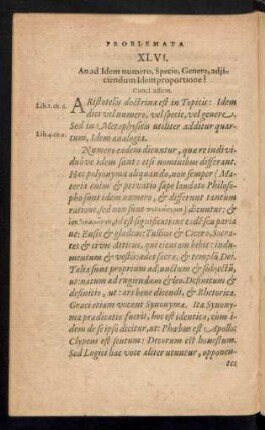 PROBLEMATA
XLVI.
An ad Idem numero, Specie, Genere, adji-
ciendum Idem proportione?
Concl. affirm.
Lib. 1. ch. 5.
ARistotelis doctrina est in Topicis: Idem
dici vel numero, vel specie, vel genere.
Sed in Metaphysicis utiliter additur quar-
tum, Idem analogia.
Numero eadem dicuntur, quæ re indivi-
duóve idem sunt: etsi nominibus differant.
Hæc polyonyma aliquando, non semper (Ma-
teria enim & privatio sæpe laudato Philoso-
pho sunt idem numero, & differunt tantum
ratione, sed non sunt) dicuntur; &
in, id est significatione eadem pariá
ut: Ensis & gladius: Tullius & Cicero, Socra-
tes & civis Atticus, qui cicutam bibit: indu-
mentum & vestis: ædes sacra, & templũ Dei.
Talia sunt proprium adjunctum & subjectũ,
ut: natum ad rugiendum & leo. Definitum &
definitio, ut: ars bene dicendi, & Rhetorica.
Græci etiam vocant Synonyma. Ita Synony-
ma prædicatio fuerit, hoc est identica, cum i-
dem de se ipso dicitur, ut: Phœbus est Apollo:
Clypeus est scutum: Decorum est honestum.
Sed Logici hac voce aliter utuntur, opponen-
tes